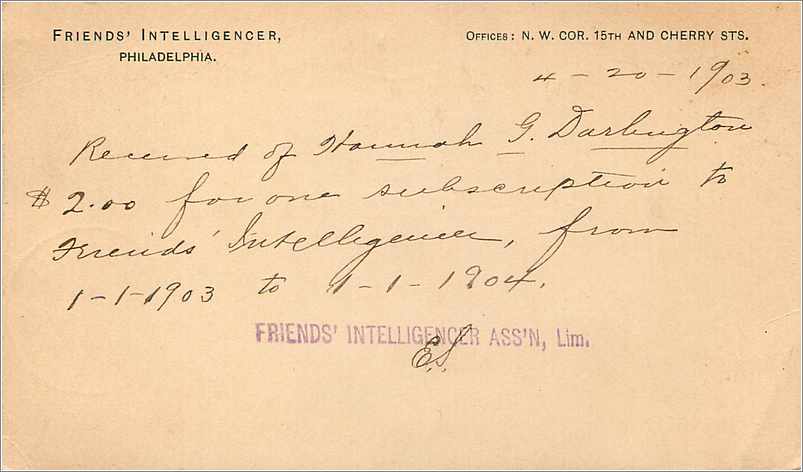 FRIENDS' INTELLIGENCER,
PHILADELPHIA.
OFFICES: N. W. COR. 15TH AND CHERRY STS.
4-20-1903.
Received of Hannah G. Darlington
$2.00 for one subscription to
Friends' Intelligencer, from
1-1-1903 to 1-1-1904.
FRIENDS' INTELLIGENCER ASS'N, Lim.
E.S.